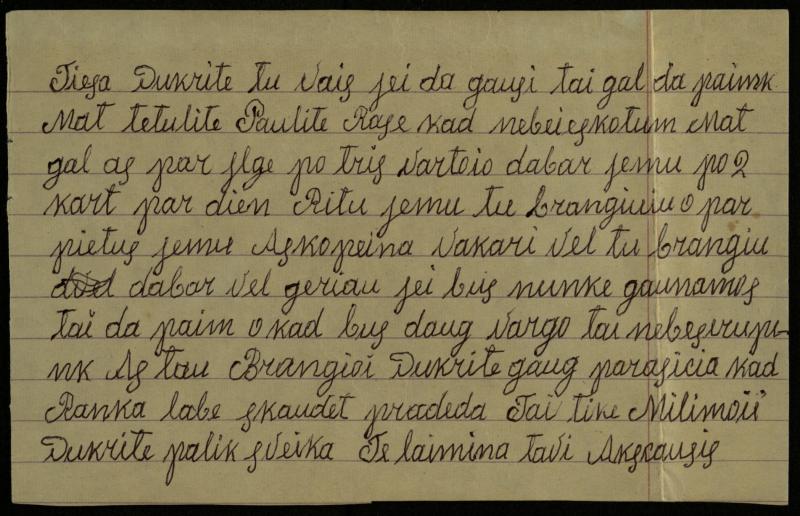 Tiesa Dukrite tu Vais jei da gausi tai gal da paimk
Mat tetulite Paulite Rase kad nebeieskotum Mat
gal as par jlge po tris Vartoio dabar jemu po 2
kart par dien Ritu jemu tu brangiuiu o par
pietus jemu Askopeina Vakari Vel tu brangiu
dabar Vel geriau jei bus nunke gaunamos
tai da paim o kad bus daug Vargo tai nebesirupi-
nk As tau Brangioi Dukrite gaug parasicia kad
Ranka labe skaudet pradeda Tai tike Milimoii
Dukrite palik sveika Te laimina tavi Aksčausis